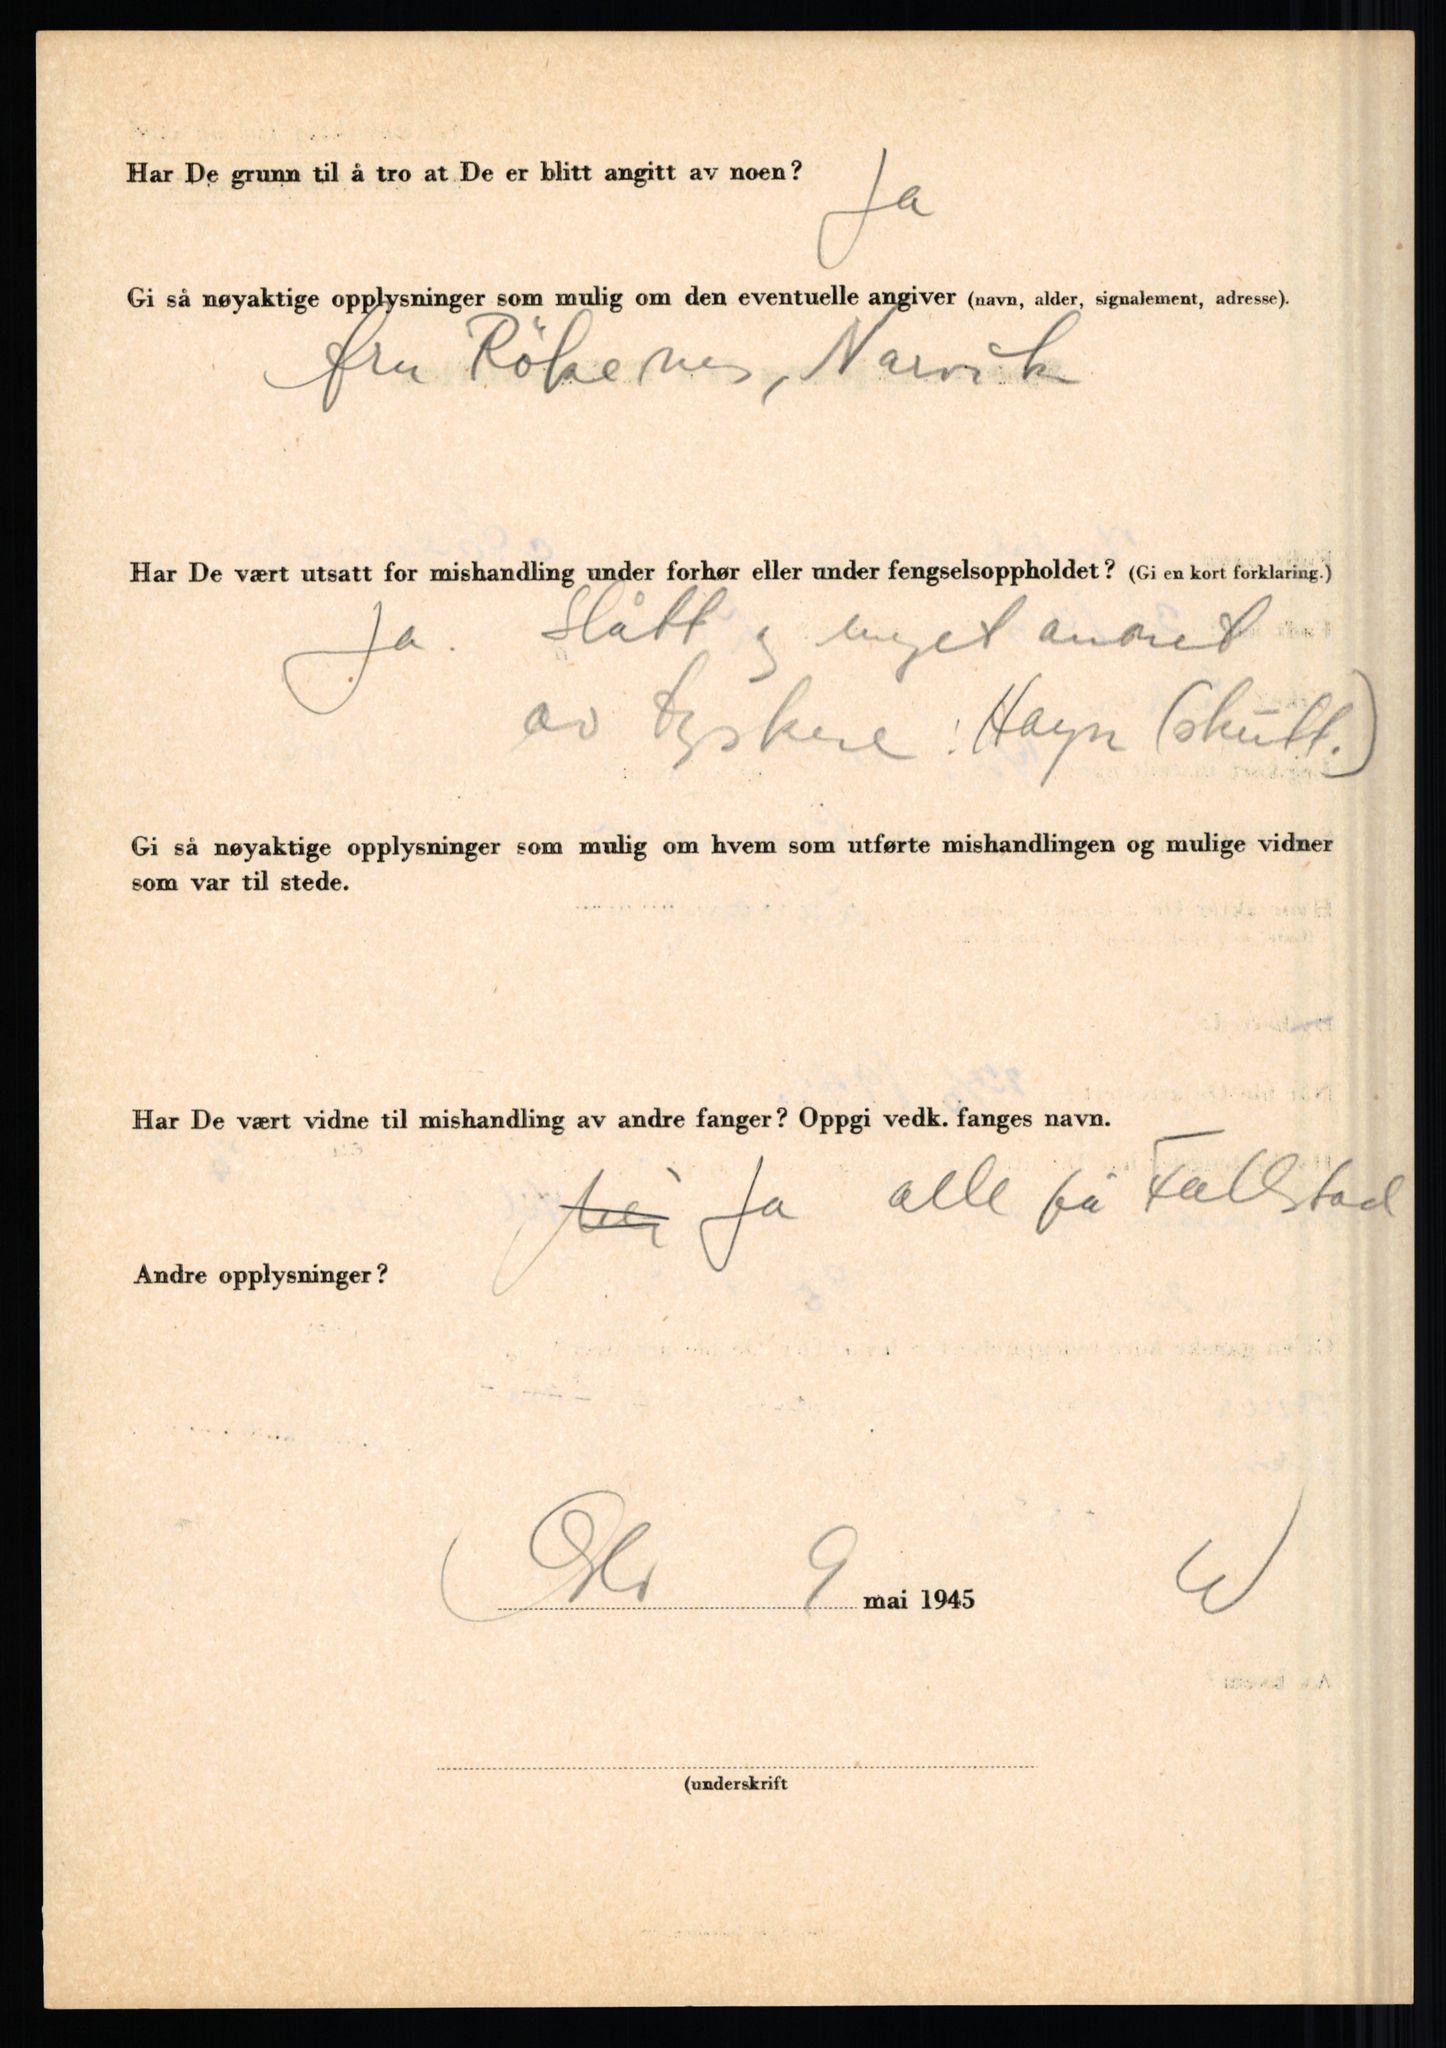 Har De grunn til å tro at De er blitt angitt av noen?
Ja
Gi så nøyaktige opplysninger som mulig om den eventuelle angiver (navn, alder, signalement, adresse).
fru Rökenes, Narvik
Har De vært utsatt for mishandling under forhør eller under fengselsoppholdet? (Gi en kort forklaring.)
Ja. Slått og meget annet
av tyskere: Hayn (skutt.)
Gi så nøyaktige opplysninger som mulig om hvem som utførte mishandlingen og mulige vidner
som var til stede.
Har De vært vidne til mishandling av andre fanger? Oppgi vedk. fanges navn.
Nei Ja alle på Falstad
Andre opplysninger?
Oslo 9 mai 1945 W
(underskrift